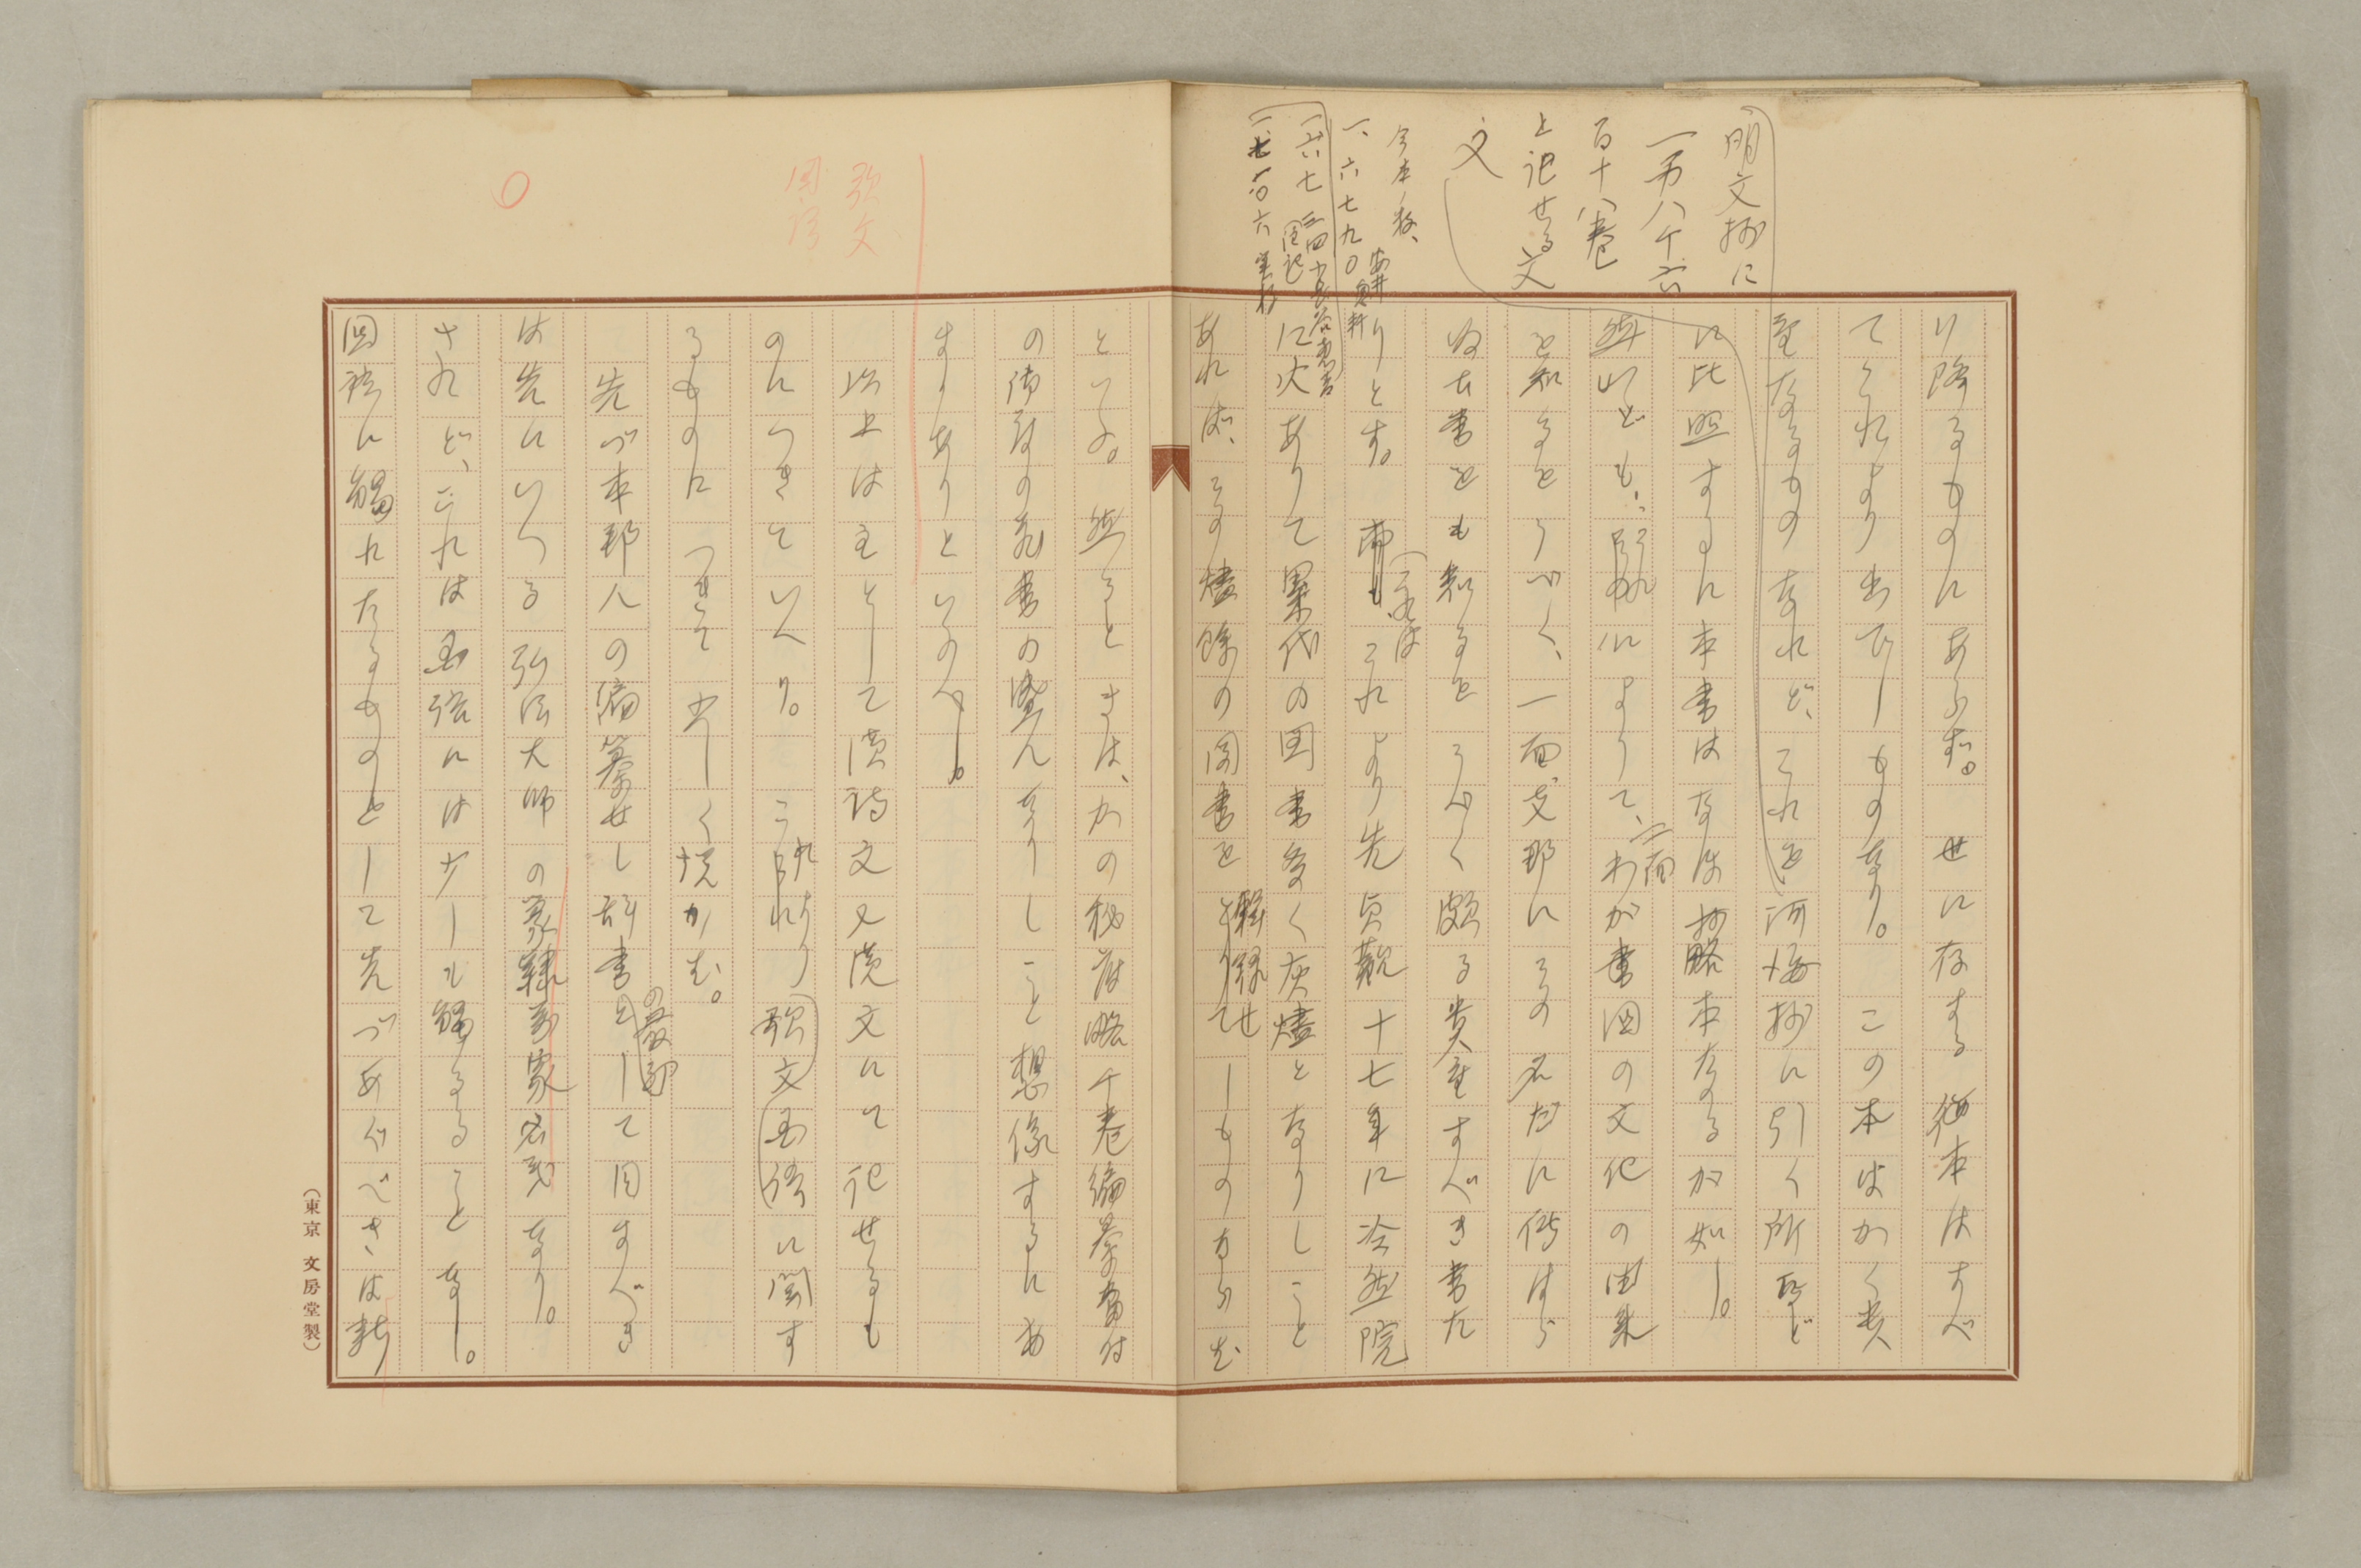 明文抄に
一万八千六
百十八巻
と記せる文
文
今本ノ数、
一、六七九〇
一六七三四
一七〇〇六
り降るものにあらず。世に存する緒本はすべ
てこれより出でしものなり。この本はかく貴
重なるものなれど、これを河海抄に引く所など
に比照するに本書はなほ抄略本なるが如し。
然れども、これによりて、一面わが書国の文化の由来
を知るをうべく、一面支那にその名だに伝はら
ぬ古書をも知るをうべく頗る貴重すべき書た
りとす。これより先貞観十七年に冷然院
に火ありて累代の図書多く灰燼となりしこと
あれば、その燼餘の図書を輯録せしものならむ
といふ。然るときは、かの秘府略千巻編纂当時
の御府の蔵書の盛んなりしこと想像するにあ
まりありといふべし。
以上は主として漢詩文又漢文にて記せるも
のにつきていへり。これより歌文国語に関す
るものにつきて少しく説かむ。
歌文
国語
先づ本邦人の編纂せし辞書の最初として目すべき
は先にいへる弘法大師の篆隷万象名義なり。
されど、これは国語には少しも觸るることなし。
国語に觸れたるものとして先づあぐべきは新
(東京 文房堂製)